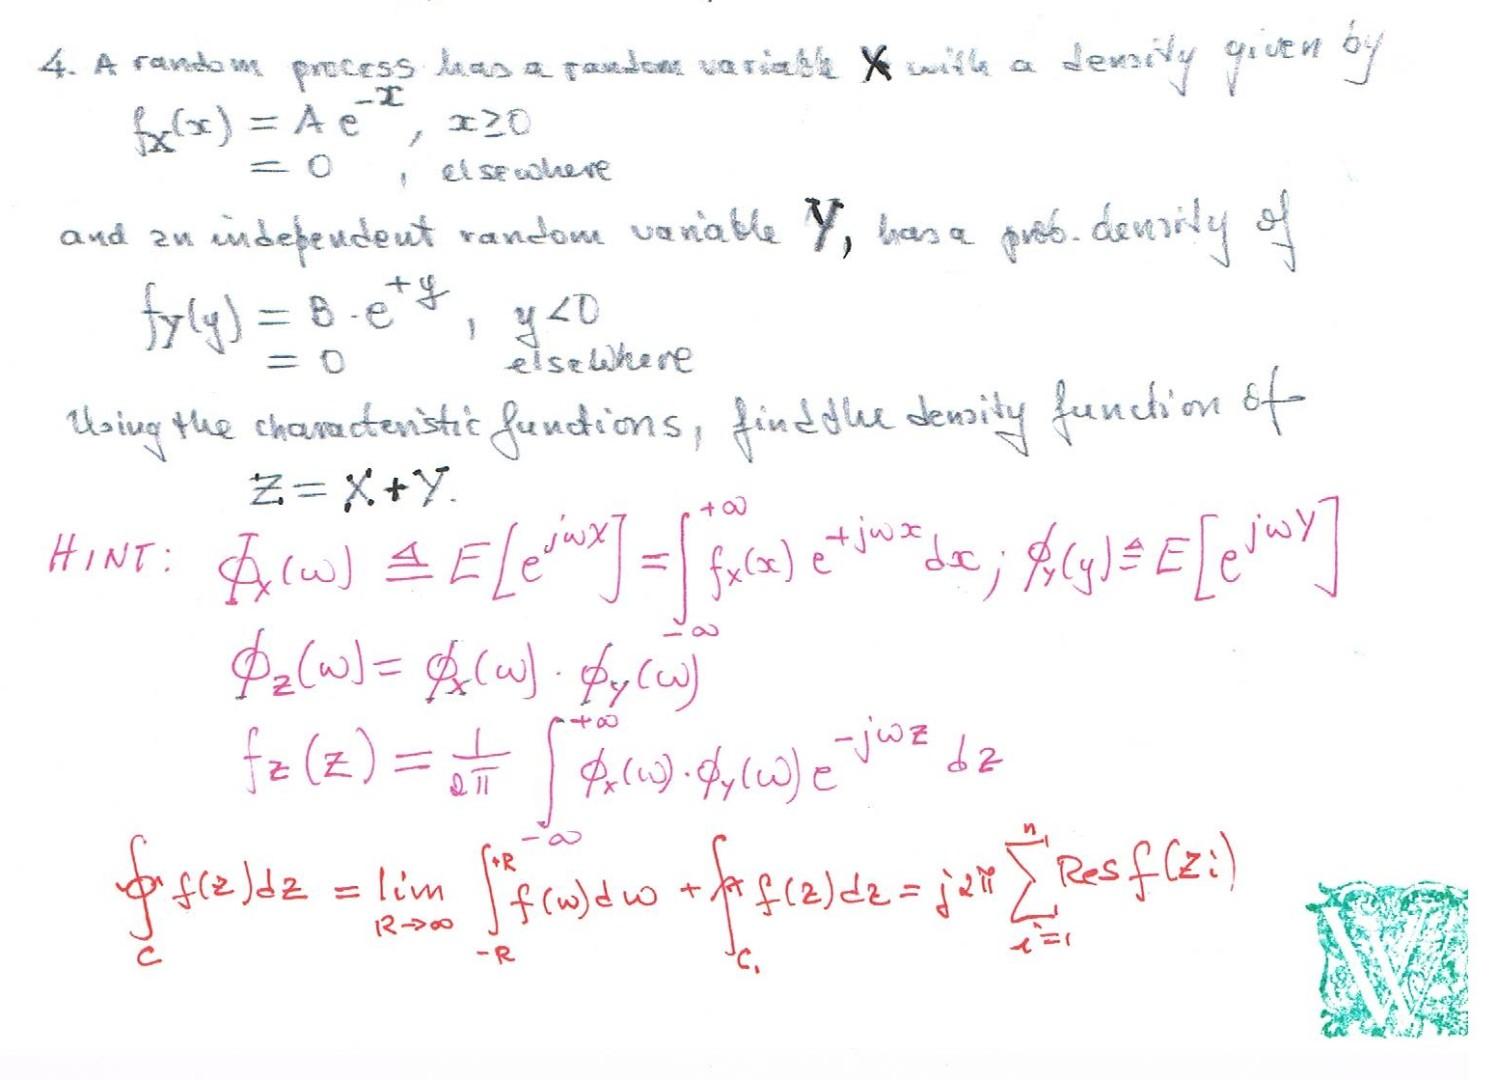 4. A random process has a random variable X with a density given by
fx(x) = A e^-x, x≥0
= 0, elsewhere
and an independent random variable Y, has a prob. density of
fy(y) = B·e^+y, y<0
= 0 elsewhere
Using the characteristic functions, find the density function of
Z = X+Y.
HINT: Φx(ω) ≜ E[e^jωX] = ∫_-∞^+∞ fx(x) e^+jωx dx; ϕy(y) ≜ E[e^jωY]
ϕz(ω) = ϕx(ω)·ϕy(ω)
fz(z) = 1/2π ∫_-∞^+∞ ϕx(ω)·ϕy(ω) e^-jωz dz
∮_C f(z)dz = lim_R→∞ ∫_-R^+R f(ω)dω + ∮_C₁ f(z)dz = j2π Σ_i=1^n Res f(zi)
W